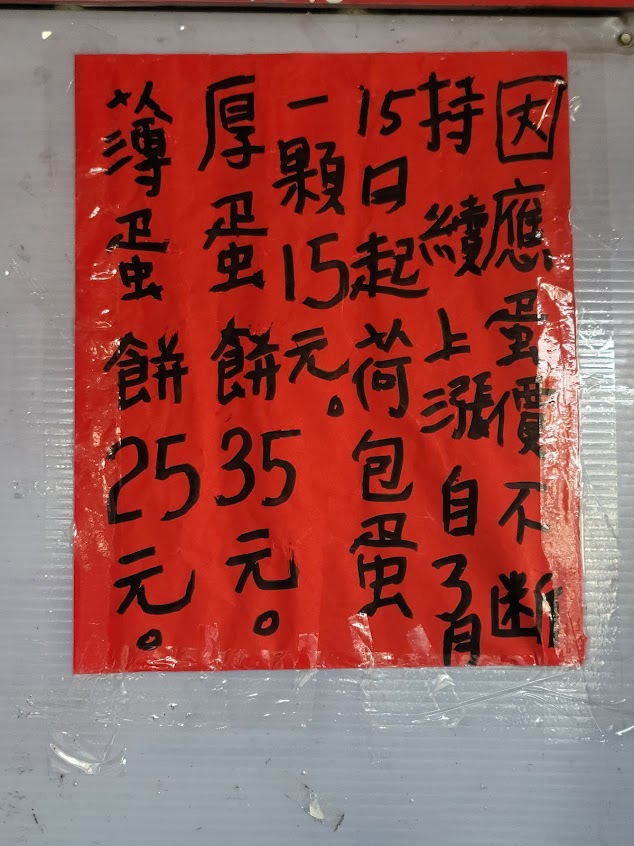 因應蛋價不斷
持續上漲自3月
15日起荷包蛋
一顆15元。
厚蛋餅35元。
薄蛋餅25元。